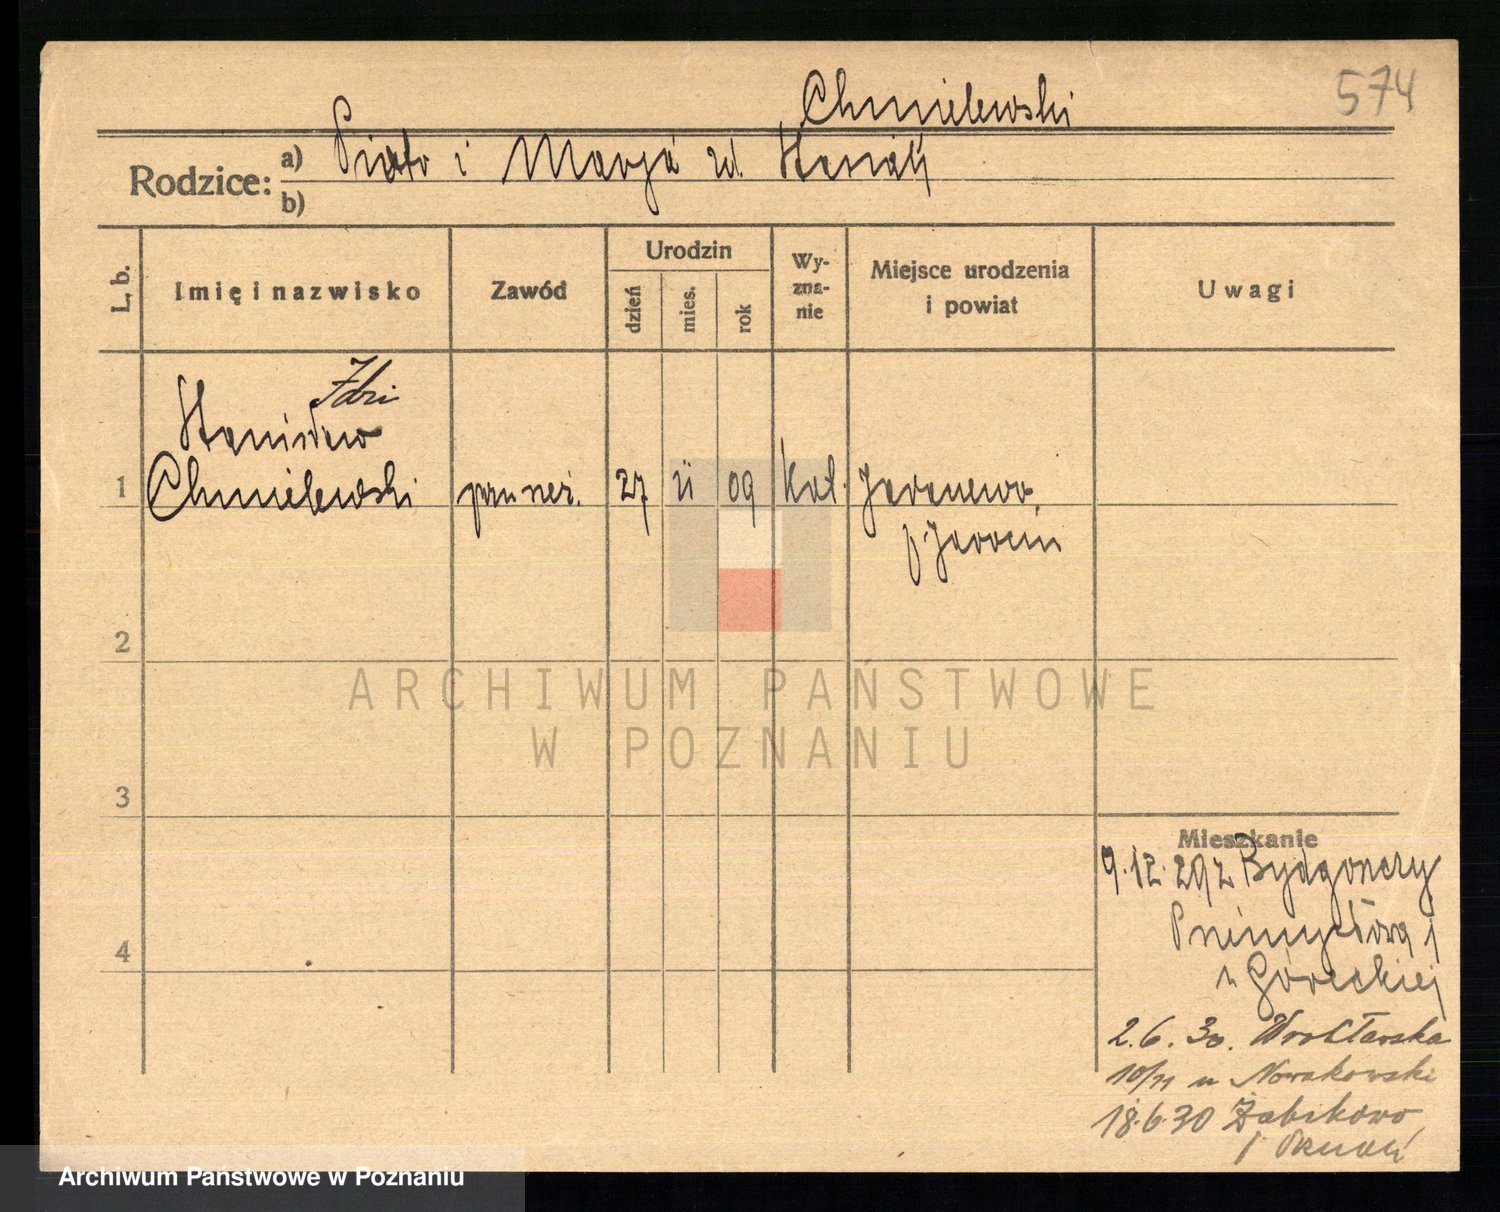 574
Chmielewski
Rodzice:
a) Piotr i Marja zd. Stasiak
b)
L. b.
Imię i nazwisko
Zawód
Urodzin
dzień
mies.
rok
Wy-
zna-
nie
Miejsce urodzenia
i powiat
Uwagi
Stanisław
1 Chmielewski 27 II 09 Kat.
p. Jarocin
2
3
4
ARCHIWUM PAŃSTWOWE
W POZNANIU
Mieszkanie
9.12.29 z Bydgoszczy
Przemysłowa
u Góreckiej
2.6.30. Wrocławska
10/11 u Nowakowski
18.6.30 Żabikowo
p Poznań
Archiwum Państwowe w Poznaniu